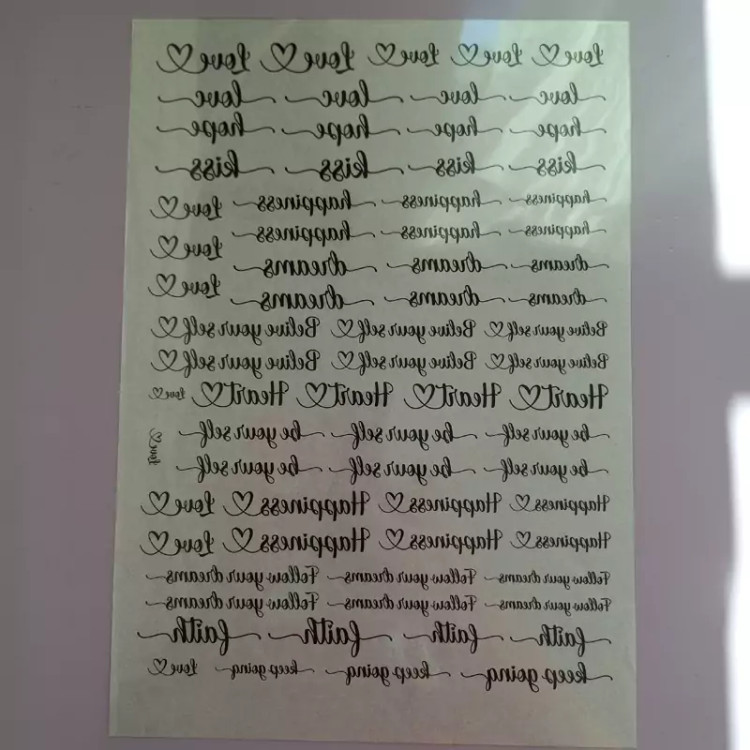 Love Love Love Love Love
love love love love
hope hope hope hope
kiss kiss kiss kiss
happiness happiness happiness Love
happiness happiness happiness Love
dreams dreams dreams
dreams dreams dreams Love
Belive your self Belive your self Belive your self
Belive your self Belive your self Belive your self
Heart Heart Heart Heart Love
be your self be your self be your self Love
be your self be your self be your self
Happiness Happiness Happiness Love
Happiness Happiness Happiness Love
Follow your dreams Follow your dreams Follow your dreams
Follow your dreams Follow your dreams Follow your dreams
faith faith faith faith
keep going keep going keep going Love